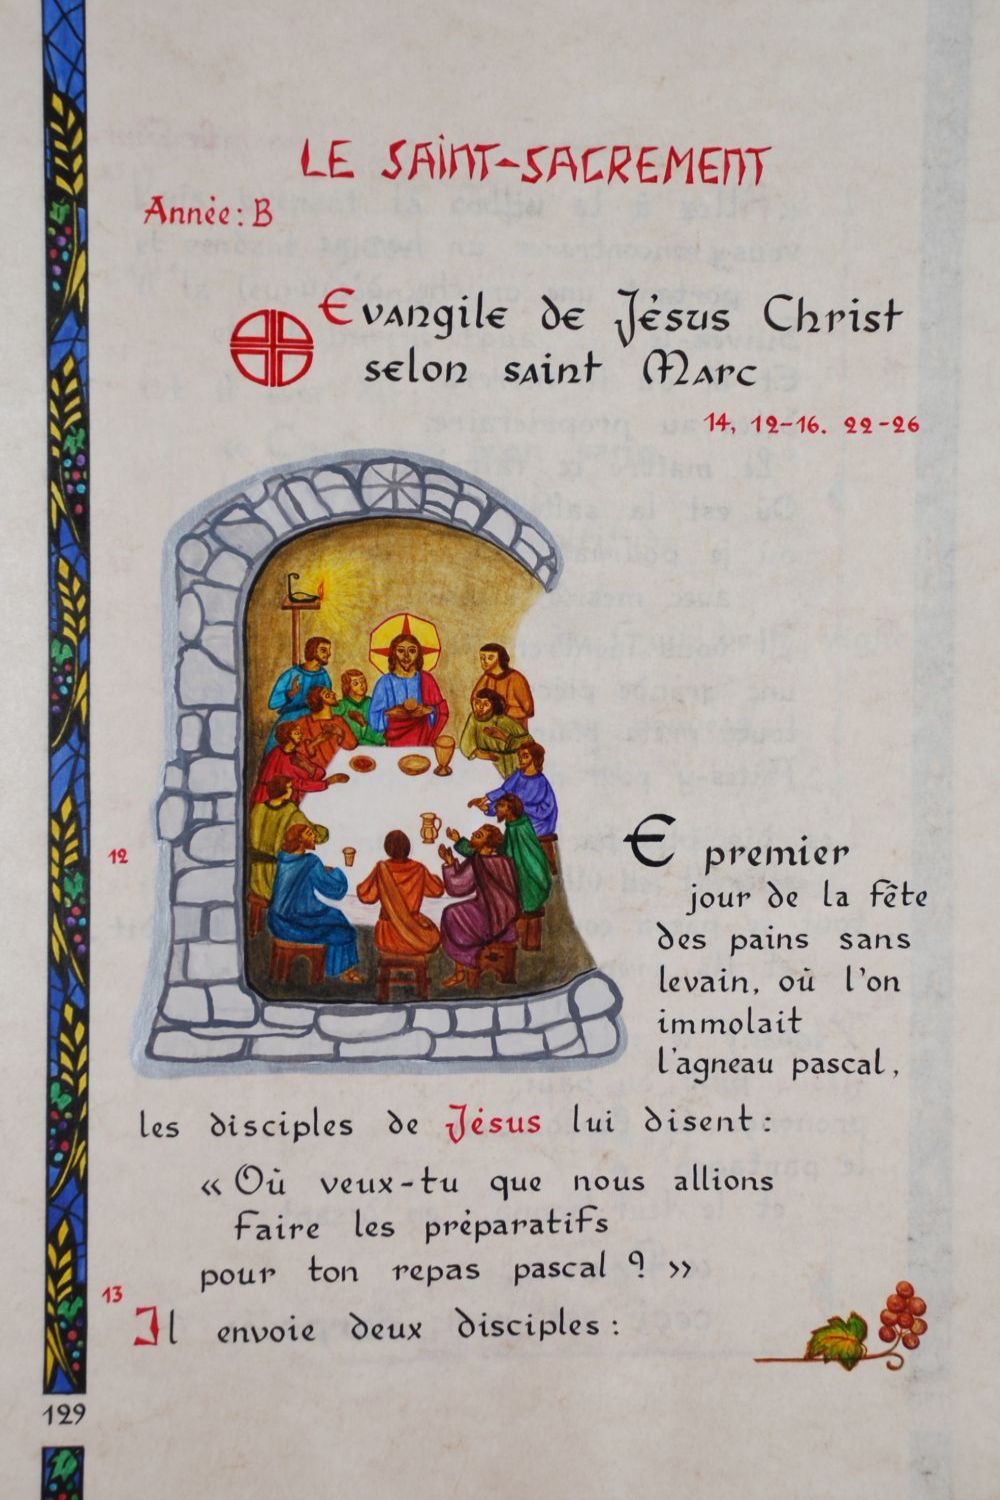 LE SAINT-SACREMENT
Année: B
Evangile de Jésus Christ
selon saint Marc
14, 12-16. 22-26
12
E premier
jour de la fête
des pains sans
levain, où l'on
immolait
l'agneau pascal,
les disciples de Jésus lui disent:
« Où veux-tu que nous allions
faire les préparatifs
pour ton repas pascal ? »
13
Il envoie deux disciples:
129